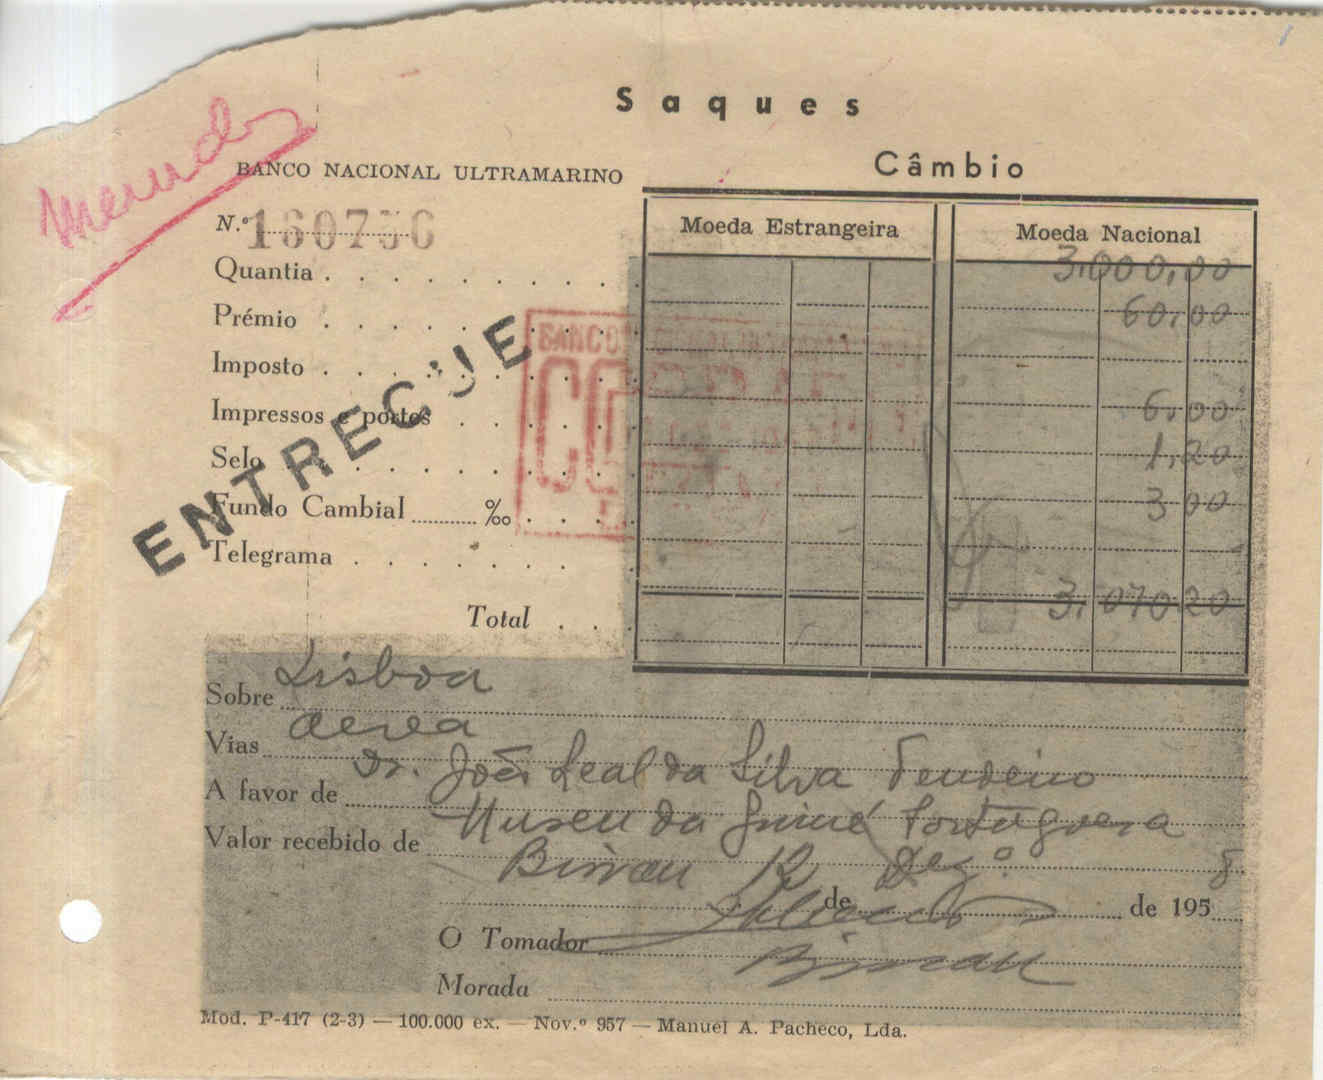 Saques
BANCO NACIONAL ULTRAMARINO
Câmbio
N.º
Moeda Estrangeira
Moeda Nacional
Quantia 3.000,00
Prémio 60,00
Imposto
Impressos e portes 6,00
Selo 1,20
Fundo Cambial ‰ 3 00
Telegrama
Total 3.070 20
BANCO
ENTREGUE
Sobre Lisboa
Vias aerea
A favor de Dr. João Leal da Silva Tendeiro
Valor recebido de Museu da Guiné Portuguesa
Bissau Dez.º 8
de de 195
O Tomador
Morada Bissau
Mod. P-417 (2-3) — 100.000 ex. — Nov.º 957 — Manuel A. Pacheco, Lda.